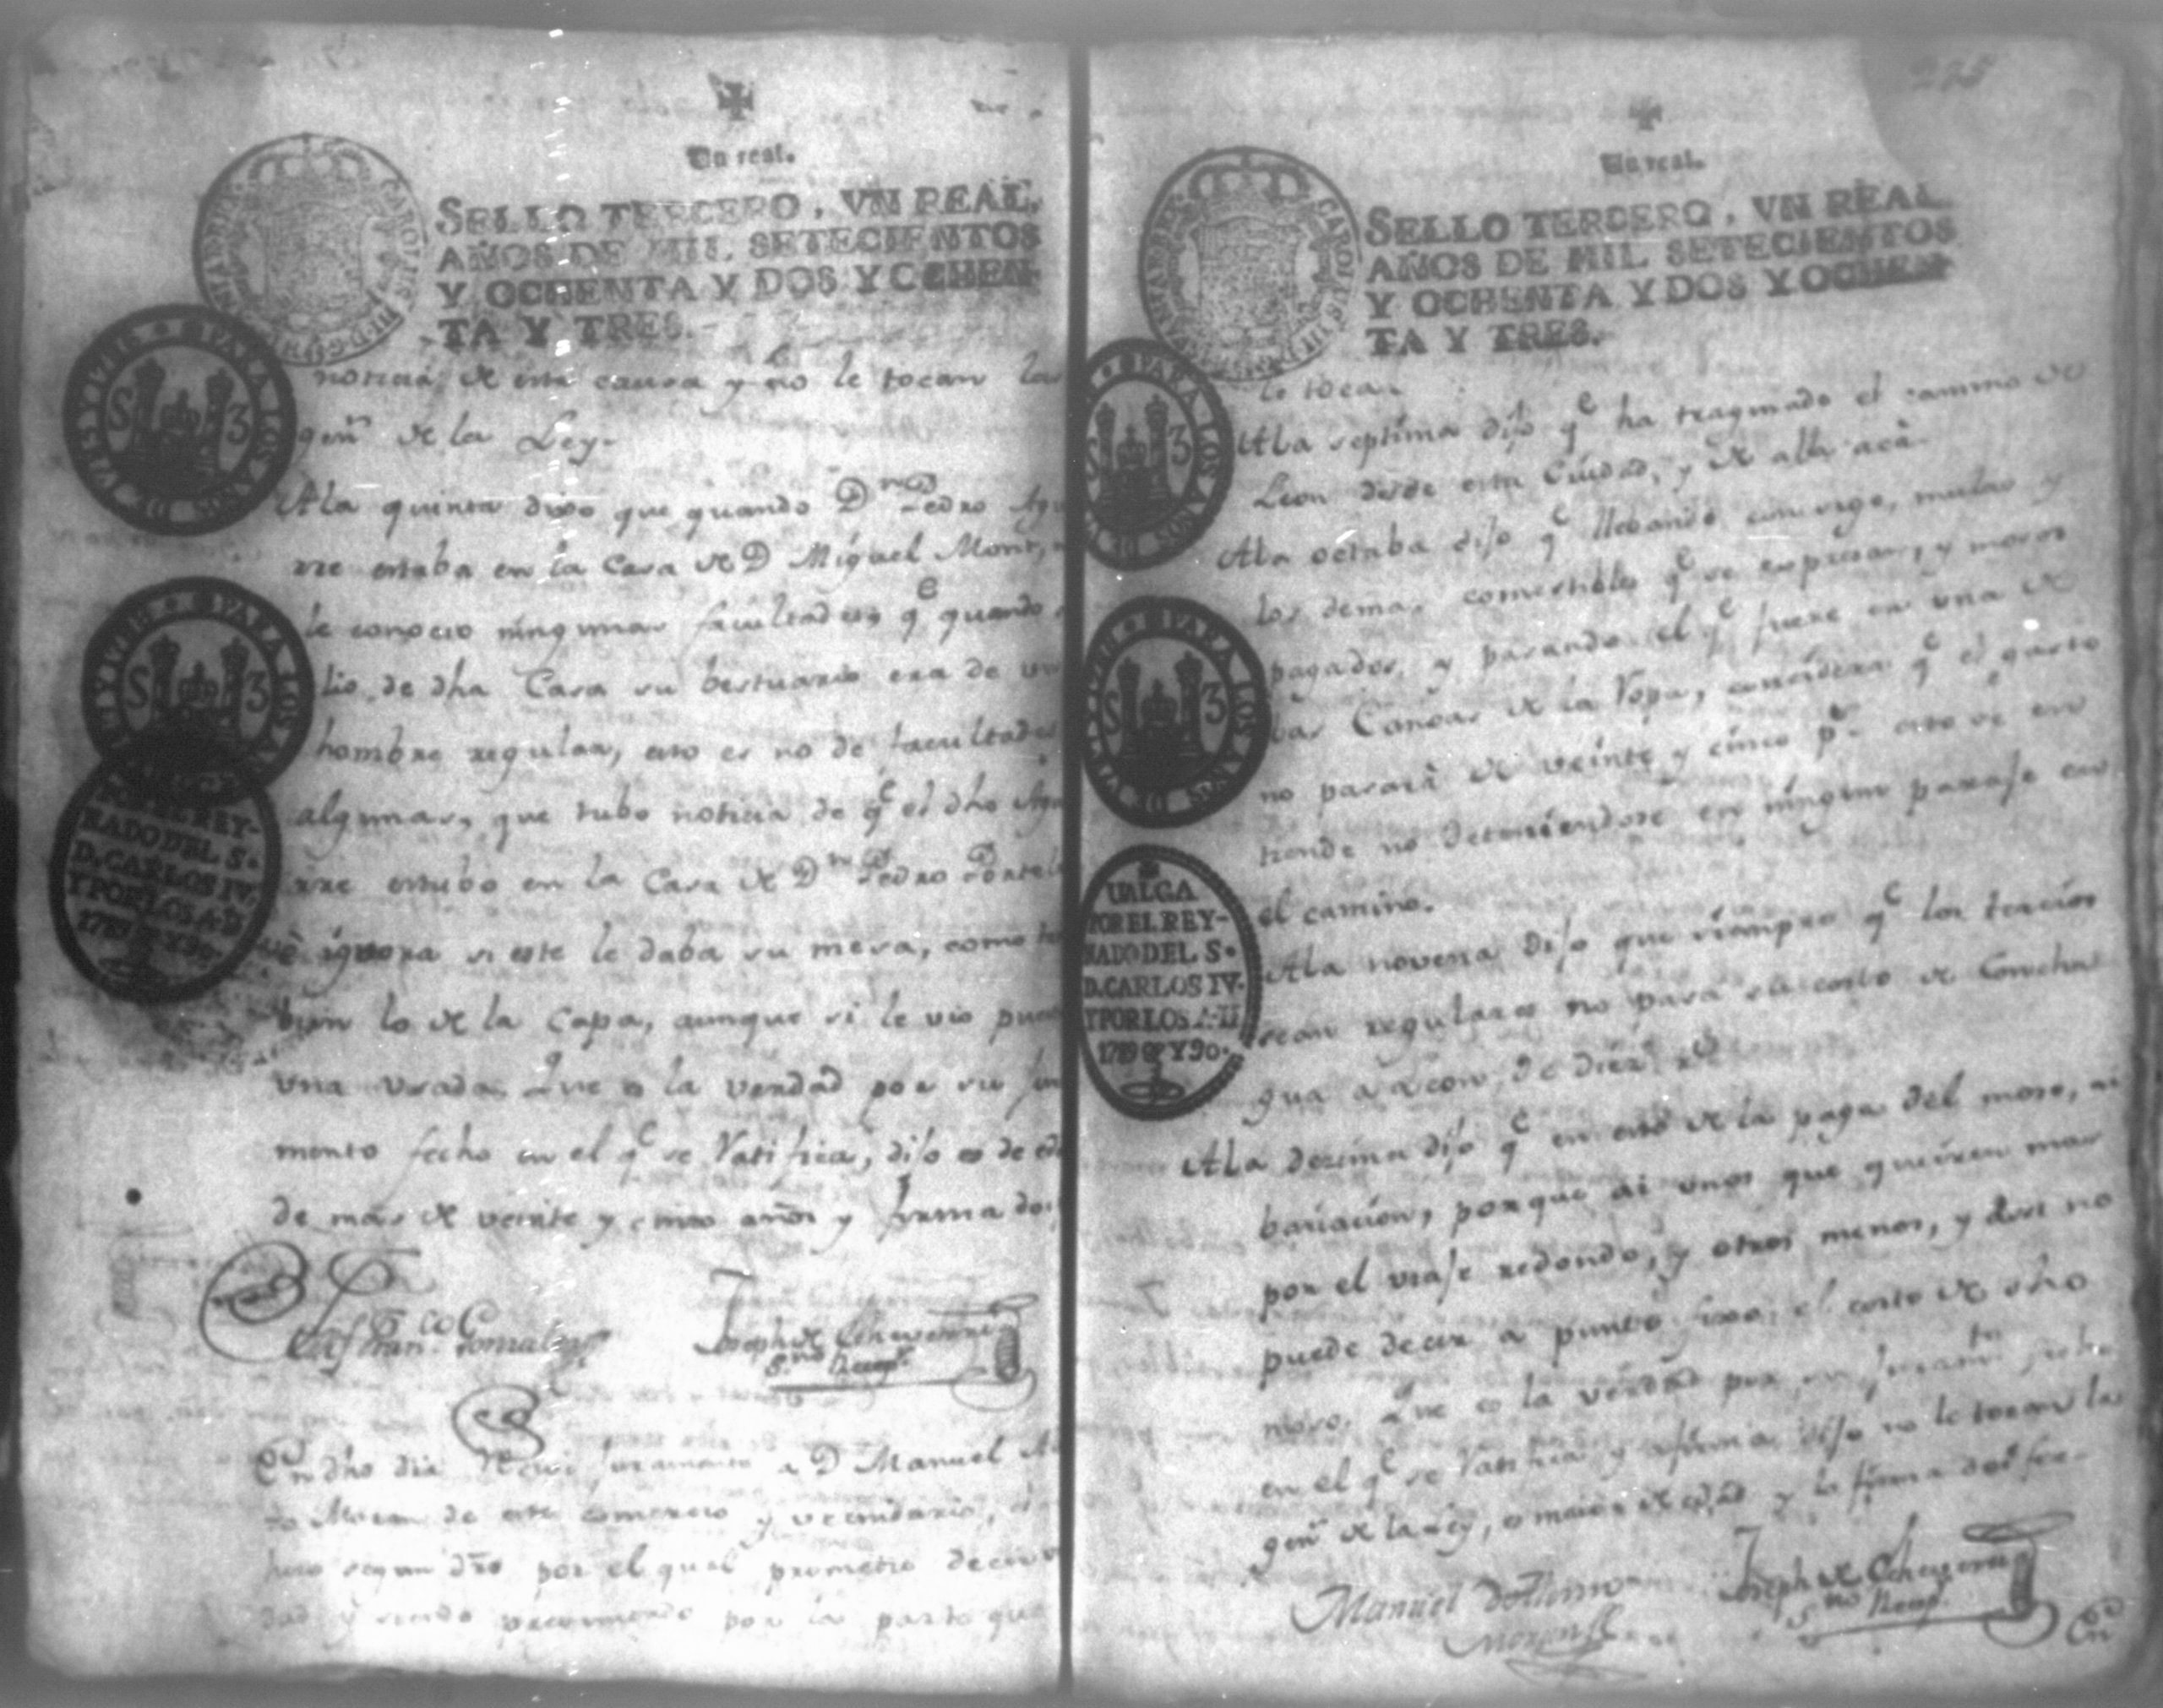 Un real.
SELLO TERCERO, VN REAL,
AÑOS DE MIL SETECIENTOS
Y OCHENTA Y DOS Y OCHEN-
TA Y TRES.
CAROLUS
PARA LOS AÑOS DE 1784 Y 1785
S 3
PARA LOS AÑOS DE
S 3
POR EL REY-
NADO DEL S.
D. CARLOS IV.
Y POR LOS A. D
1789 Y 90.
noticia de esta causa y no le tocan las
gen.s de la Ley.
A la quinta dixo que quando D.n Pedro Agu
rre estaba en la Casa de D Miguel Mont,
le conocio ningunas facultades q.e quando
lio de dha Casa su bestuario era de un
hombre regular, esto es no de facultades
algunas, que tubo noticia de q.e el dho Agu
rre estubo en la Casa de D.n Pedro Portel
ignora si este le daba su mesa, como ta
bien lo de la Capa, aunque si le vio pues
una usada. Que es la verdad por su ju
mento fecho en el q.e se Ratifica, dijo es de ed
de más de veinte y cinco años y firma doi
Luis Fran.co Gonzalez
Joseph de Echeverria
S.no Recep.r
En dho dia Recivi juramento a D Manuel
Moran de este comercio y vecindario,
hizo segun dro por el qual prometio decir
dad y siendo preguntado por la parte que
275
Un real.
SELLO TERCERO, VN REAL
AÑOS DE MIL SETECIENTOS
Y OCHENTA Y DOS Y OCHEN-
TA Y TRES.
PARA LOS AÑOS DE
S 3
PARA LOS AÑOS DE
S 3
VALGA
POR EL REY-
NADO DEL S.
D. CARLOS IV.
Y POR LOS A. D
1789 Y 90.
lo toca.
A la septima dijo q.e ha traginado el camino de
Leon desde esta Ciudad, y de alla acà
A la octaba dijo q.e llebando consigo, mulas y
los demas comestibles q.e se expresan, y mosos
pagados, y pasando el q.e fuere en una de
las Canoas de la Ropa, considera q.e el gasto
no pasarà de veinte y cinco p.s esto se en
tiende no deteniendose en ningun paraje en
el camino.
A la novena dijo que siempre q.e los tercios
sean regulares no pasa su costo de Concha
gua a Leon, de diez r.s
A la dezima dijo q.e en esto de la paga del moso, ai
bariacion, porque ai unos que quieren mas
por el viaje redondo, y otros menos, y assi no
puede decir a punto fixo el costo de dho
moso. Que es la verdad por su juram.to fecho
en el q.e se Ratifica y afirma dijo no le tocan las
gen.s de la Ley, es maior de edad y lo firma doi fee.
Manuel
Moran
Joseph de Echeverria
S.no Recep.r
En